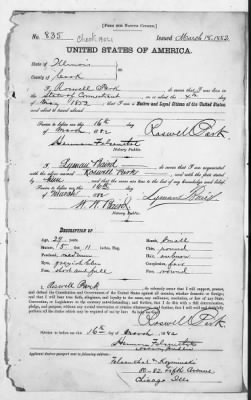 [FORM FOR NATIVE CITIZEN.]
No. 835 Issued March 18, 1882
UNITED STATES OF AMERICA.
State of Illinois
County of Cook
I, Roswell Park do swear that I was born in the
State of Connecticut, on or about the 4th day
of May 1852; that I am a Native and Loyal Citizen of the United States,
and about to travel abroad.
Sworn to before me this 16th day
of March 1882
Roswell Park
Notary Public.
I, Lyman do swear that I am acquainted
with the above named Roswell Park and with the facts stated
by him and that the same are true to the best of my knowledge and belief.
Sworn to before me this 16th day
of March 1882
Notary Public.
DESCRIPTION OF
Age: 29 years. Mouth: small
Stature: 5 feet 11 inches, Eng. Chin: round
Forehead: medium Hair: auburn
Eyes: Complexion: fair
Nose: Face: round
I, Roswell Park do solemnly swear that I will support, protect,
and defend the Constitution and Government of the United States against all enemies, whether domestic or foreign;
and that I will bear true faith, allegiance, and loyalty to the same, any ordinance, resolution, or law of any State,
Convention, or Legislature to the contrary notwithstanding; and further, that I do this with a full determination,
pledge, and purpose, without any mental reservation or evasion whatsoever; and further, that I will well and
faithfully perform all the duties which may be required of me by law: So help me God.
Roswell Park
Sworn to before me this 16th day of March 1882
Applicant desires passport sent to following address:
Felsenthal & Kozminski
80-82 Fifth Avenue
Chicago Ills